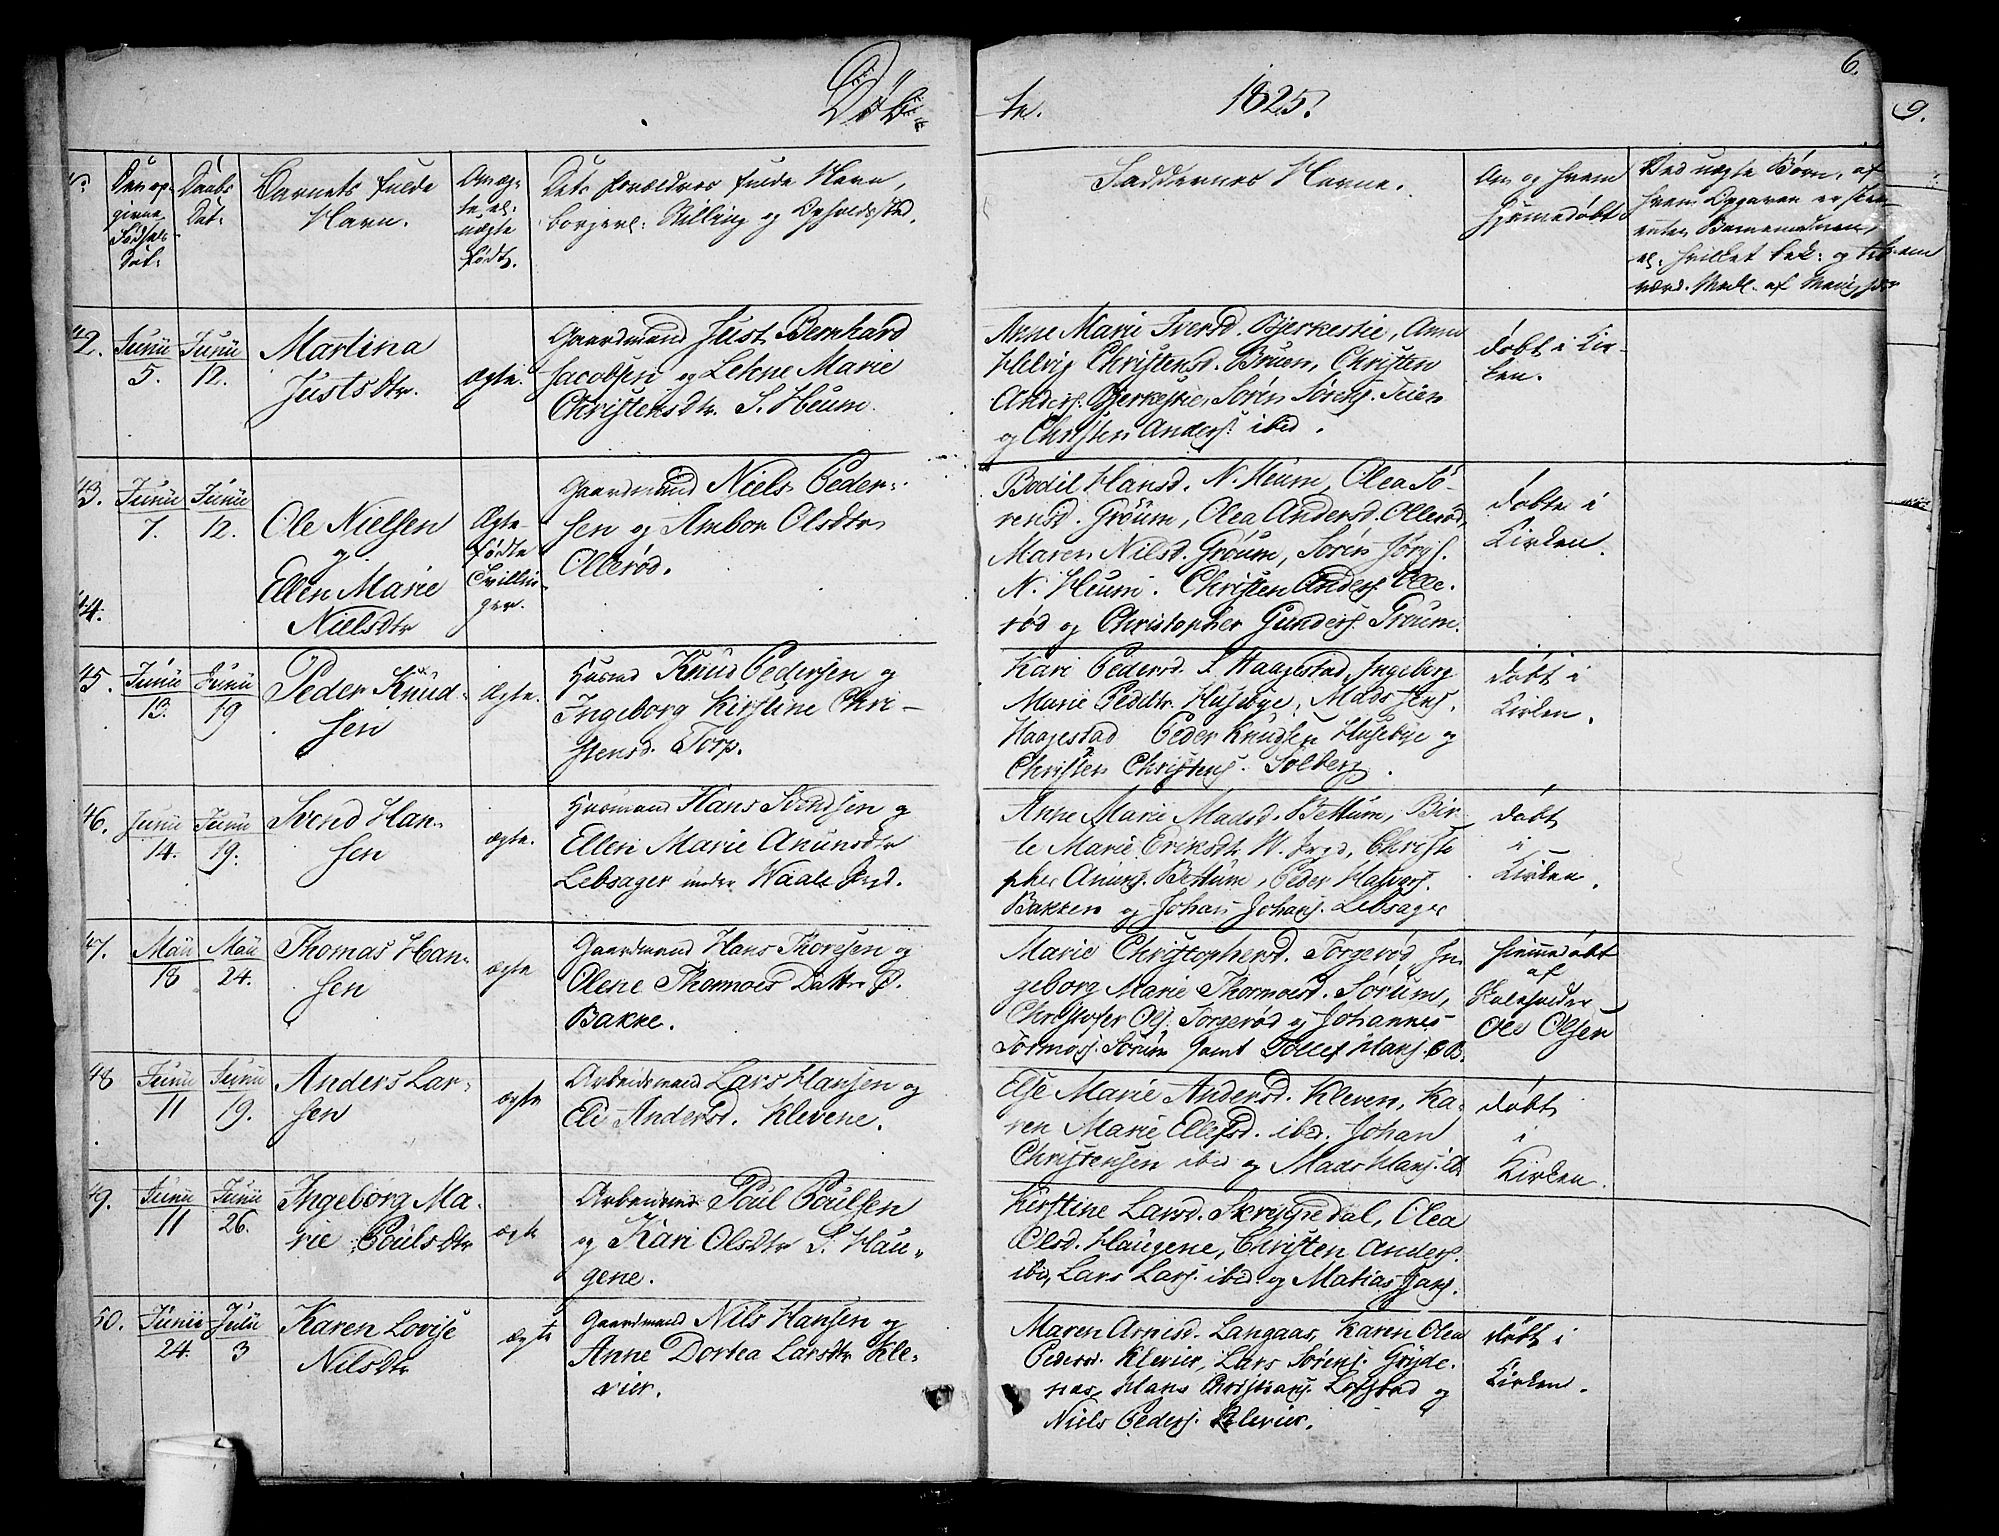 Døb-
te. 1825.
6.
9.
Den op-
givne
Fødsels
Dat:
Daabs
Dat:
Barnets fulde
Navn.
Om æg-
te el:
uægte
født.
Dets Forældres fulde Navn,
borgerl: Stilling og Opholdssted.
Faddernes Navne.
Om og hvem
hjemmedøbt
Ved uægte Børn, af
hvem Opgaven er skeet
enten Barnemoderen,
el. hvilket bek: og
værd. Medl. af Menigheden
42. Junii 5. Junii 12.
Martina
Justsdtr.
Ægte.
Gaardmand Just Bernhard
Jacobsen og Lehne Marie
Christensdtr. S. Heum.
Anne Marie Iversd. Bjerkestie, Anne
Helvig Christensd. Bruen, Christen
Anders. Bjerkestie, Søren Sørens. Teien
og Christen Anders. ibid.
døbt i Kir-
ken.
43. Junii 7. Junii 12.
Ole Nielsen
og
44.
Ellen Marie
Nielsdtr
Ægte
fødte
Tvillin-
ger.
Gaardmand Niels Peder-
sen og Ambor Olsdtr
Ollerød.
Bodil Hansd. N. Heum, Olea Sø-
rensd. Grøum, Olea Andersd. Ollerød,
Maren Nilsd. Grøum, Søren Jørgs.
N. Heum. Christen Anders. Olle-
rød og Christopher Gunders. Grøum.
døbte i
Kirken.
45. Junii 13. Junii 19
Peder Knud-
sen
Ægte.
Husmd Knud Pedersen og
Ingeborg Kirstine Chri-
stensd. Torp.
Kari Pedersd. S. Haagestad, Ingeborg
Marie Peddtr. Husebye, Mads Jens.
Haagestad Peder Knudsen Husebye og
Christen Christens. Solberg.
døbt i
Kirken.
46. Junii 14. Junii 19.
Svend Han-
sen
ægte.
Husmand Hans Svendsen og
Ellen Marie Anunsdtr
Lebsager under Waale Prgd.
Anne Marie Madsd. Bettum, Bir-
te Marie Eriksdtr. W. Prgd, Christo
pher Anuns. Bettum, Peder Halvors.
Bakken og Johan Johans. Lebsager
døbt
i
Kirken.
47. Maii 18 Maii 24.
Thomas Han-
sen
ægte
Gaardmand Hans Thoresen og
Olene Thomoes Datter P.
Bakke.
Marie Christophersd. Torgerød, In-
geborg Marie Thormoesd. Sørum,
Christofer Ols. Torgerød og Johannes
Tormos. Sørum samt Tollef Hans. P. B.
hjemmedøbt
af
Skoleholder
Ole Olsen
48 Junii 11 Junii 19.
Anders Lar-
sen
ægte
Arbeidsmand Lars Hansen og
Eli Andersd. Klevene.
Else Marie Andersd. Kleven, Ka-
ren Marie Ellefsd. ibid. Johan
Christensen ibid og Mads Hans. ib.
døbt
i
Kirken.
49. Junii 11 Junii 26.
Ingeborg Ma-
rie Poulsdtr
ægte
Arbeidsmd Poul Poulsen
og Kari Olsdtr S. Hau-
gene.
Kirstine Larsd. Skreppedal, Olea
Olsd. Haugene, Christen Anders.
ibid, Lars Lars. ibid og Matias Jans.
50. Junii 24. Julii 3
Karen Lovise
Nilsdtr
ægte
Gaardmand Nils Hansen og
Anne Dortea Larsdtr Kle-
vier.
Maren Arnisd. Langaas, Karen Olea
Pedersd. Klevier, Lars Sørens. Gryde-
næs, Hans Christians. Lofstad og
Niels Peders. Klevier.
døbt i
Kirken.